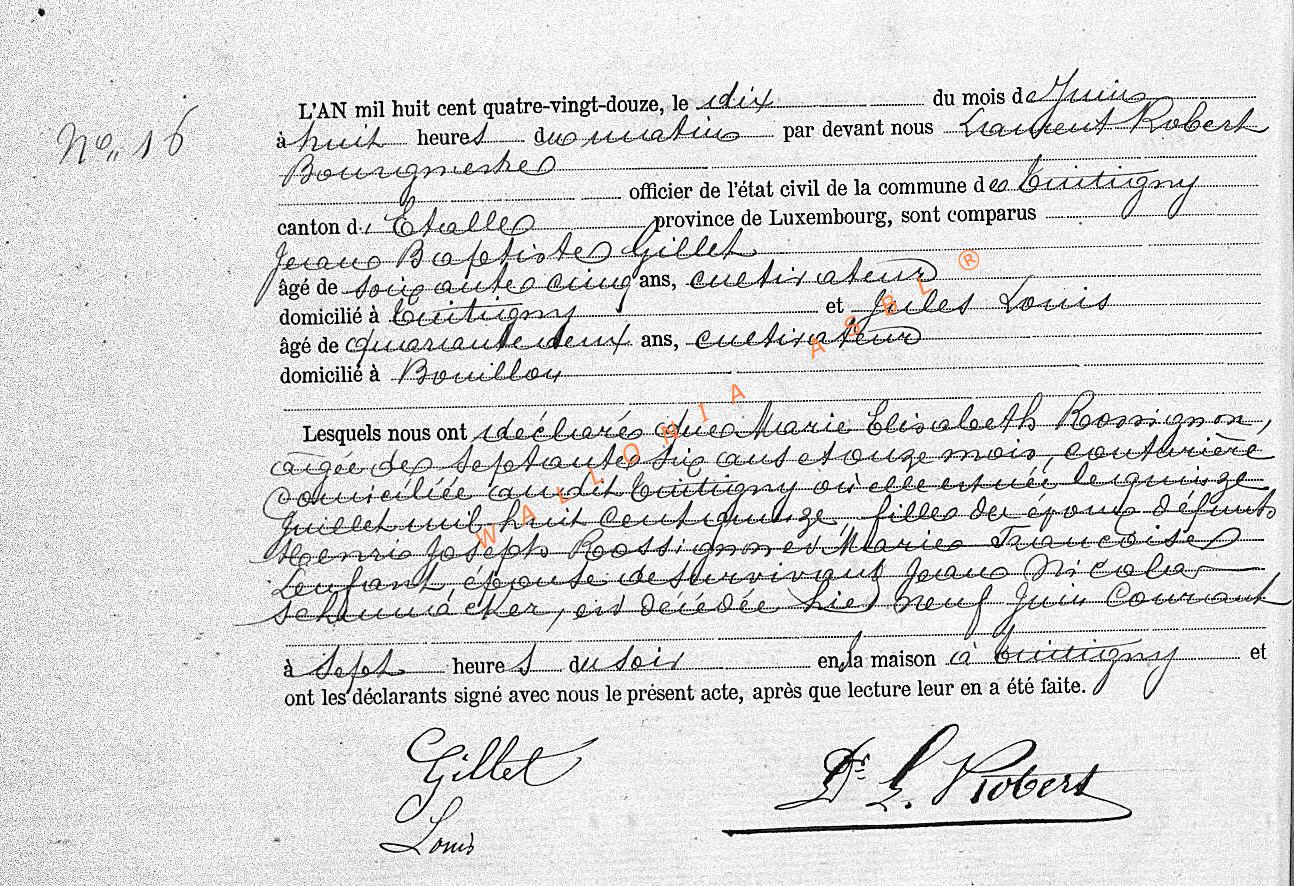 L'AN mil huit cent quatre-vingt-douze, le dix du mois de Juin
N° 16
à huit heures du matin par devant nous Laurent Robert
Bourgmestre
officier de l'état civil de la commune de Tintigny
canton d'Etalle province de Luxembourg, sont comparus
Jean Baptiste Gillet
âgé de soixante cinq ans, cultivateur
domicilié à Tintigny et Jules Louis
âgé de quarante deux ans, cultivateur
domicilié à Bouillon
Lesquels nous ont déclaré que Marie Elisabeth Rossignon,
âgée de septante six ans et onze mois, couturière
domiciliée au dit Tintigny où elle est née le quinze
Juillet mil huit cent quinze, fille des époux défunts
Henri Joseph Rossignon et Marie Francoise
Lenfant, épouse de survivant Jean Nicolas
Schumäcker, est décédée hier neuf Juin Courant
à sept heures du soir en sa maison à Tintigny et
ont les déclarants signé avec nous le présent acte, après que lecture leur en a été faite.
Gillet
Dr L. Robert
Louis
WALLONIA ASBL ®